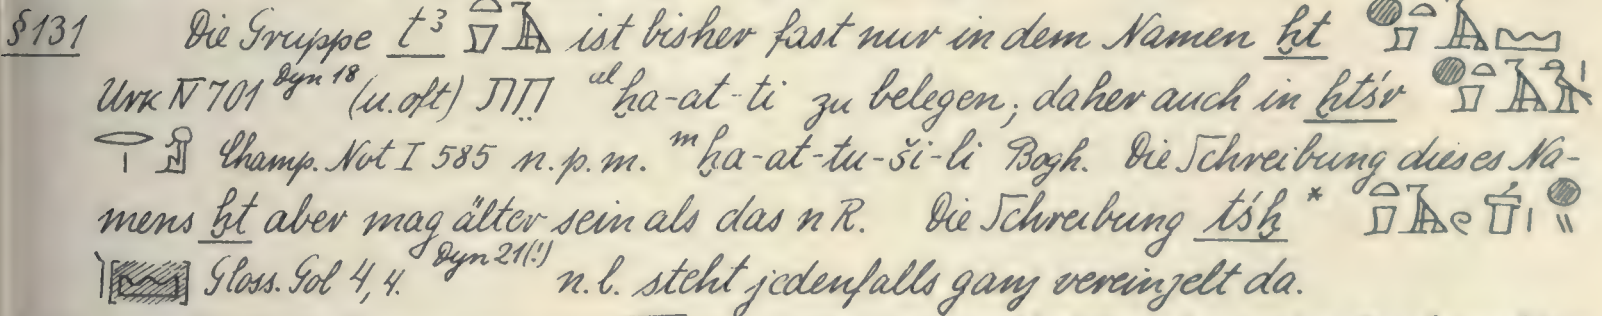 §131 Die Gruppe t³ ist bisher fast nur in dem Namen ḫt
Urk IV 701 Dyn 18 (u. oft) ᵃˡḫa-at-ti zu belegen; daher auch in ḫtśr
Champ. Not I 585 n. p. m. ᵐḫa-at-tu-ši-li Bogh. Die Schreibung dieses Na-
mens ḫt aber mag älter sein als das n R. Die Schreibung tśḫ *
Gloss. Gol 4, 4. Dyn 21(!) n. l. steht jedenfalls ganz vereinzelt da.